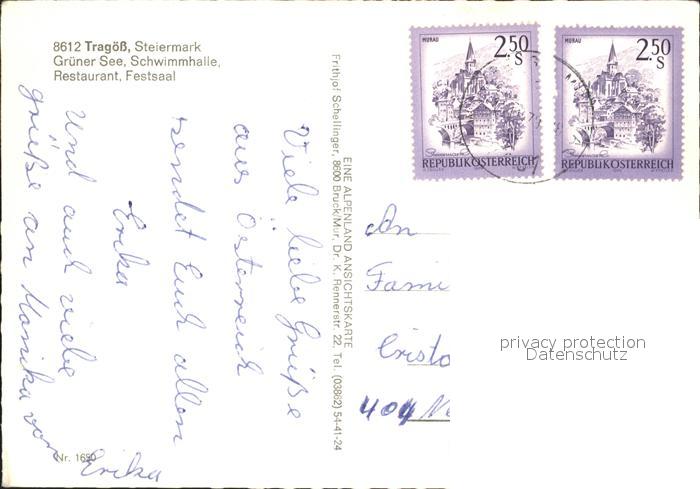 8612 Tragöß, Steiermark
Grüner See, Schwimmhalle,
Restaurant, Festsaal
Viele liebe Grüße
aus Österreich
sendet Euch allen
Erika
Und auch viele
grüße an Monika von
Erika
Nr. 1650
EINE ALPENLAND ANSICHTSKARTE
Frithjof Schellinger, 8600 Bruck/Mur, Dr. K. Rennerstr. 22, Tel. (03862) 54-41-24
MURAU
2.50
S
REPUBLIK ÖSTERREICH
MURAU
2.50
S
REPUBLIK ÖSTERREICH
An
Fami
Cristo
404 Ne
privacy protection
Datenschutz